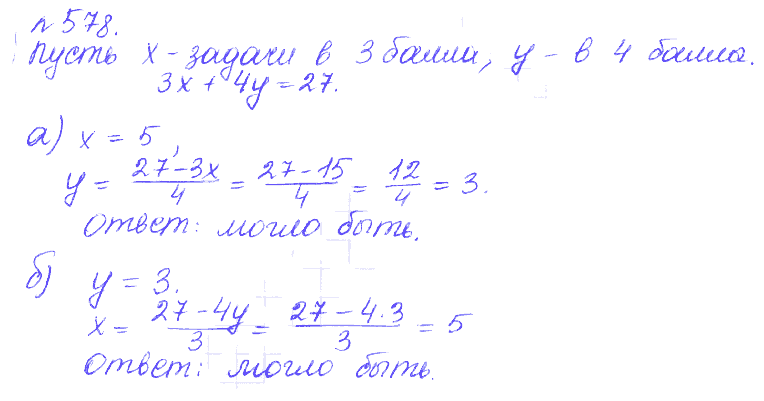 № 578.
Пусть x - задачи в 3 балла, y - в 4 балла.
3x + 4y = 27.
а) x = 5,
y = (27 - 3x)/4 = (27 - 15)/4 = 12/4 = 3.
Ответ: могло быть.
б) y = 3.
x = (27 - 4y)/3 = (27 - 4·3)/3 = 5
Ответ: могло быть.